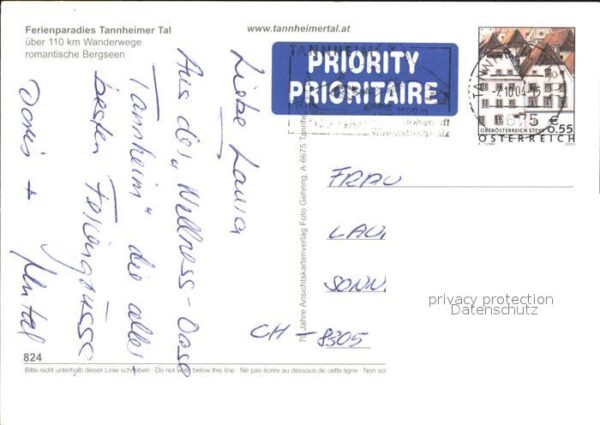 Ferienparadies Tannheimer Tal
über 110 km Wanderwege
romantische Bergseen
www.tannheimertal.at
PRIORITY
PRIORITAIRE
TANNHEIM
0,55 €
OBERÖSTERREICH STEYR
ÖSTERREICH
Liebe Laura
Aus der „Wellness-Oase
Tannheim" die aller-
besten Feriengrüsse
Doris +
FRAU
LAU
SONN
CH - 8305
privacy protection
Datenschutz
70 Jahre Ansichtskartenverlag Foto Gehring, A-6675 Tannheim
824
Bitte nicht unterhalb dieser Linie schreiben · Do not write below this line · Ne pas écrire au dessous de cette ligne · Non sc